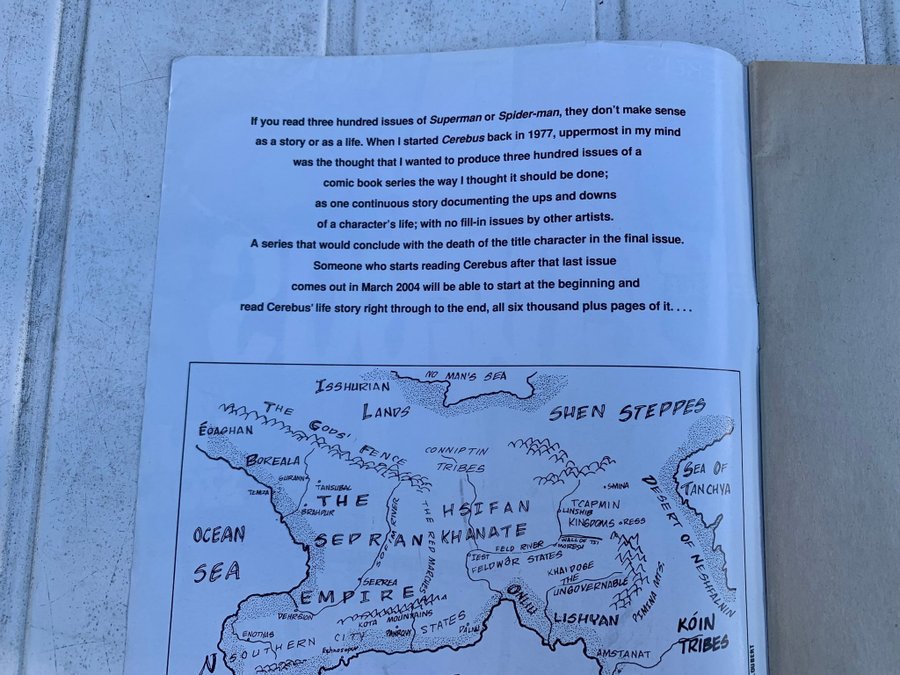 If you read three hundred issues of Superman or Spider-man, they don't make sense
as a story or as a life. When I started Cerebus back in 1977, uppermost in my mind
was the thought that I wanted to produce three hundred issues of a
comic book series the way I thought it should be done;
as one continuous story documenting the ups and downs
of a character's life; with no fill-in issues by other artists.
A series that would conclude with the death of the title character in the final issue.
Someone who starts reading Cerebus after that last issue
comes out in March 2004 will be able to start at the beginning and
read Cerebus' life story right through to the end, all six thousand plus pages of it. . . .
NO MAN'S SEA
ISSHURIAN
LANDS
SHEN STEPPES
THE GODS' FENCE
EOAGHAN
CONNIPTIN
TRIBES
BOREALA
SEA OF
TANCHYA
TANSUBAL
THE
BRAHPUR
HSIFAN
KHANATE
TCAPMIN
KINGDOMS
RESS
DESERT OF NESHFALNIN
OCEAN
SEA
SEPRAN
THE RED MARCHES
IEST
FELD RIVER
WALL OF TSI
FELDWAR STATES
KHAIDOGE
THE
UNGOVERNABLE
SERREA
EMPIRE
ONLIU
LISHYAN
KÓIN
TRIBES
KOTA MOUNTAINS
ENOTHIS
SOUTHERN CITY STATES
AMSTANAT